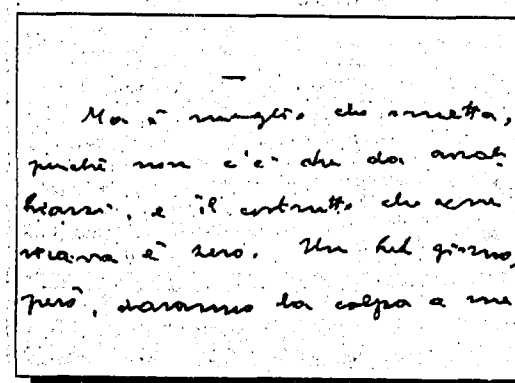 Ma è meglio che smetta,
perché non c'è che da arrab
biarsi, e il costrutto che se ne
ricava è zero. Un bel giorno,
però, daranno la colpa a me